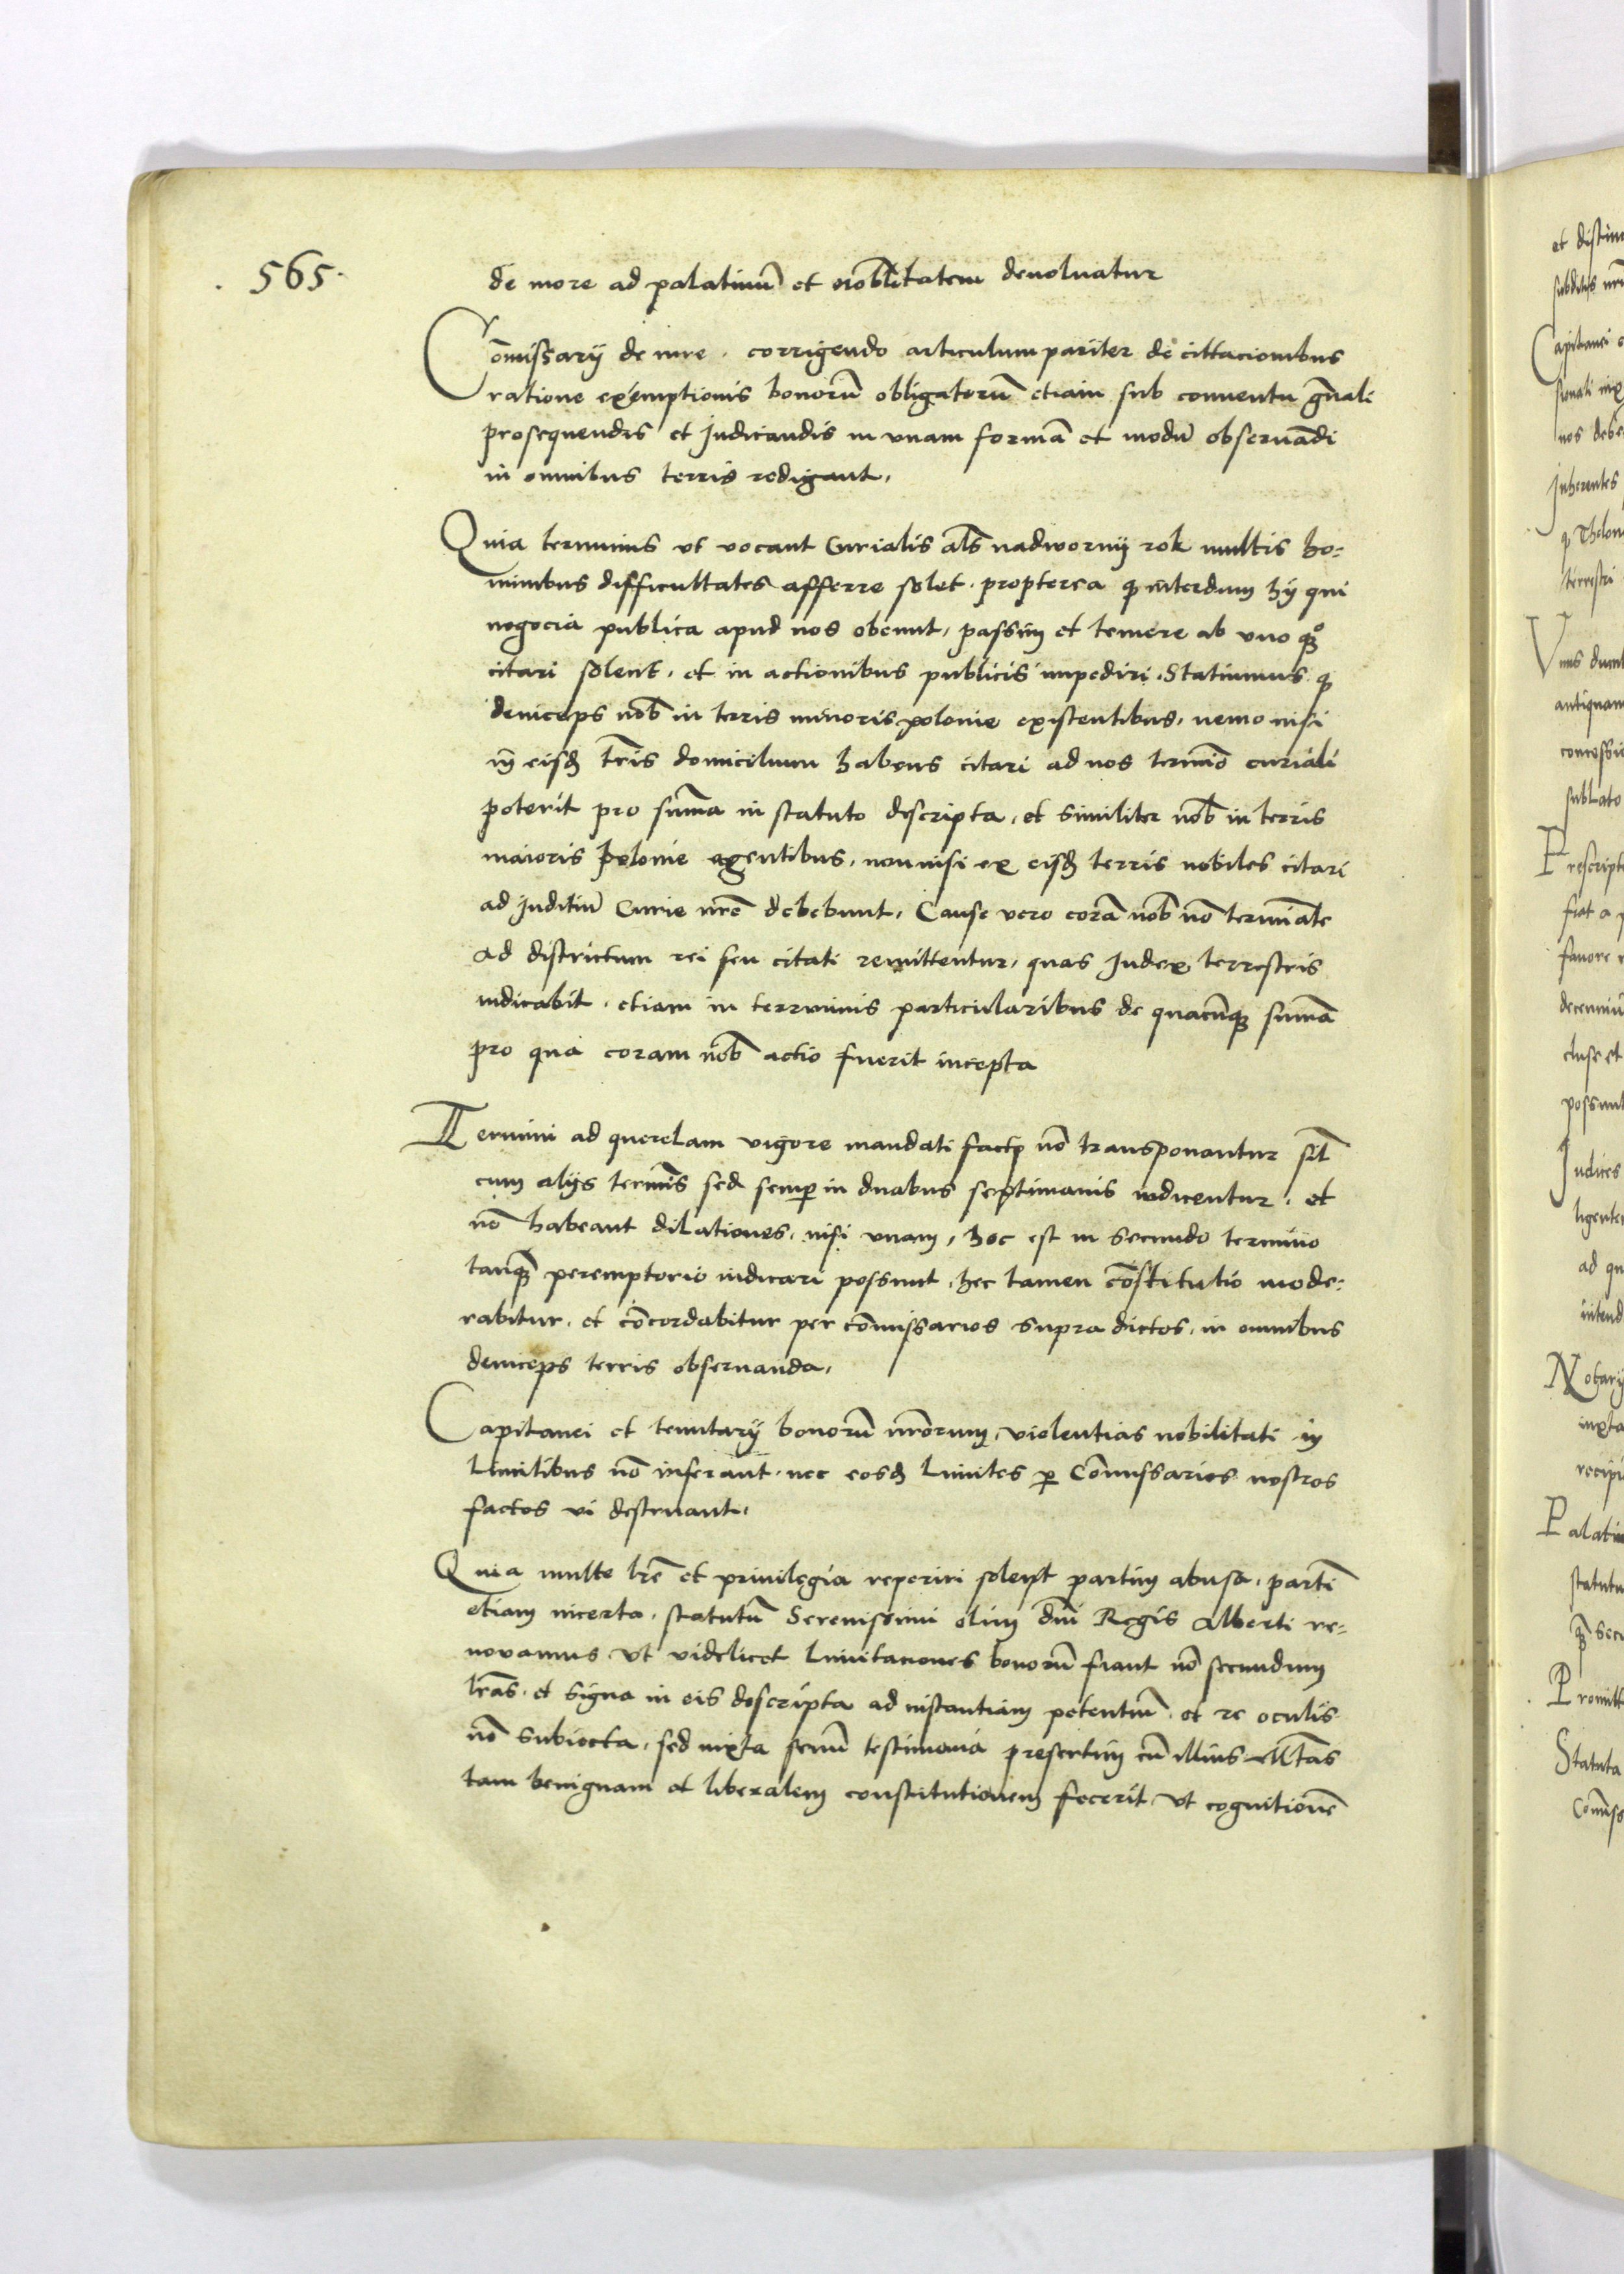 565.
de more ad palatinū et nobłitatem deuoluatur
Cōmissarÿ de iure. corrigendo articulum pariter de cittacionibus
ratione exemptionis bonorū obligatorū etiam sub conuentu gn̄ali
prosequendis et Judicandis in vnam formā et modū obseruādi
in omnibus terris redigant,
Quia terminus vt vocant Curialis als̄ nadwornÿ rok multis ho:
minibus difficultates afferre solet. propterea ꝙ interdum hÿ qui
negocia publica apud nos obeunt, passim et temere ab vno qꝫͦ
citari solent, et in actionibus publicis impediri. Statuimus ꝙ
deinceps nob̄ in terris minoris polonie existentibus, nemo nisi
in eisđ tr̄is domicilium habens citari ad nos termīo curiali
poterit pro sum̄a in statuto descripta, et similiter nob̄ in terris
maioris polonie agentibus, non nisi ex eisđ terris nobiles citari
ad Juditiū Curie nr̄e debebunt, Cause vero corā nob̄ nō termināte
ad districtum rei seu citati remittentur, quas Judex terrestris
iudicabit. etiam in terminis particularibus de quacūqꝫ sum̄a
pro qua coram nob̄ actio fuerit incepta
Termini ad querelam vigore mandati facti nō transponantur sil̄
cum alÿs termīs sed semꝑ in duabus septimanis iudicentur, et
nō habeant dilationes, nisi vnam, hoc est in secundo termino
tanqꝫ̄ peremptorio iudicari possunt, hec tamen cōstitutio mode:
rabitur, et cōcordabitur per cōmissarios supra dictos, in omnibus
deinceps terris obseruanda,
Capitanei et tenutarÿ bonorū nr̄orum, violentias nobilitati in
Limitibus nō inferant, nec eosđ Limites ꝑ Cōmissarios nostros
factos vi destruant,
Quia multe lr̄e et priuilegia reperiri solent partim abusa, partī
etiam incerta, statutū Serenissimi olim dn̄i Regis Alberti re:
nouamus vt videlicet Limitaciones bonorū fiant nō secundum
lr̄as, et signa in eis descripta ad instantiam petentiū, et re oculis
nō subiecta, sed iuxta senū testimonia presertim cū illius Mt̄as
tam benignam et liberalem constitutionem fecerit, vt cognitionē
et distin
subditis nr̄
Capitanei
nos debe
Inherentes
ꝙ Thelon
terrestri
antiquam
concessi
sublato
Prescript
fiat a
fauore
decenniū
cluse et
possunt
Judices
ligenter
ad qu
intend
Notarÿ
iuxta
recipi
Palatin
statutu
Promitt
Statuta
Cōmiss